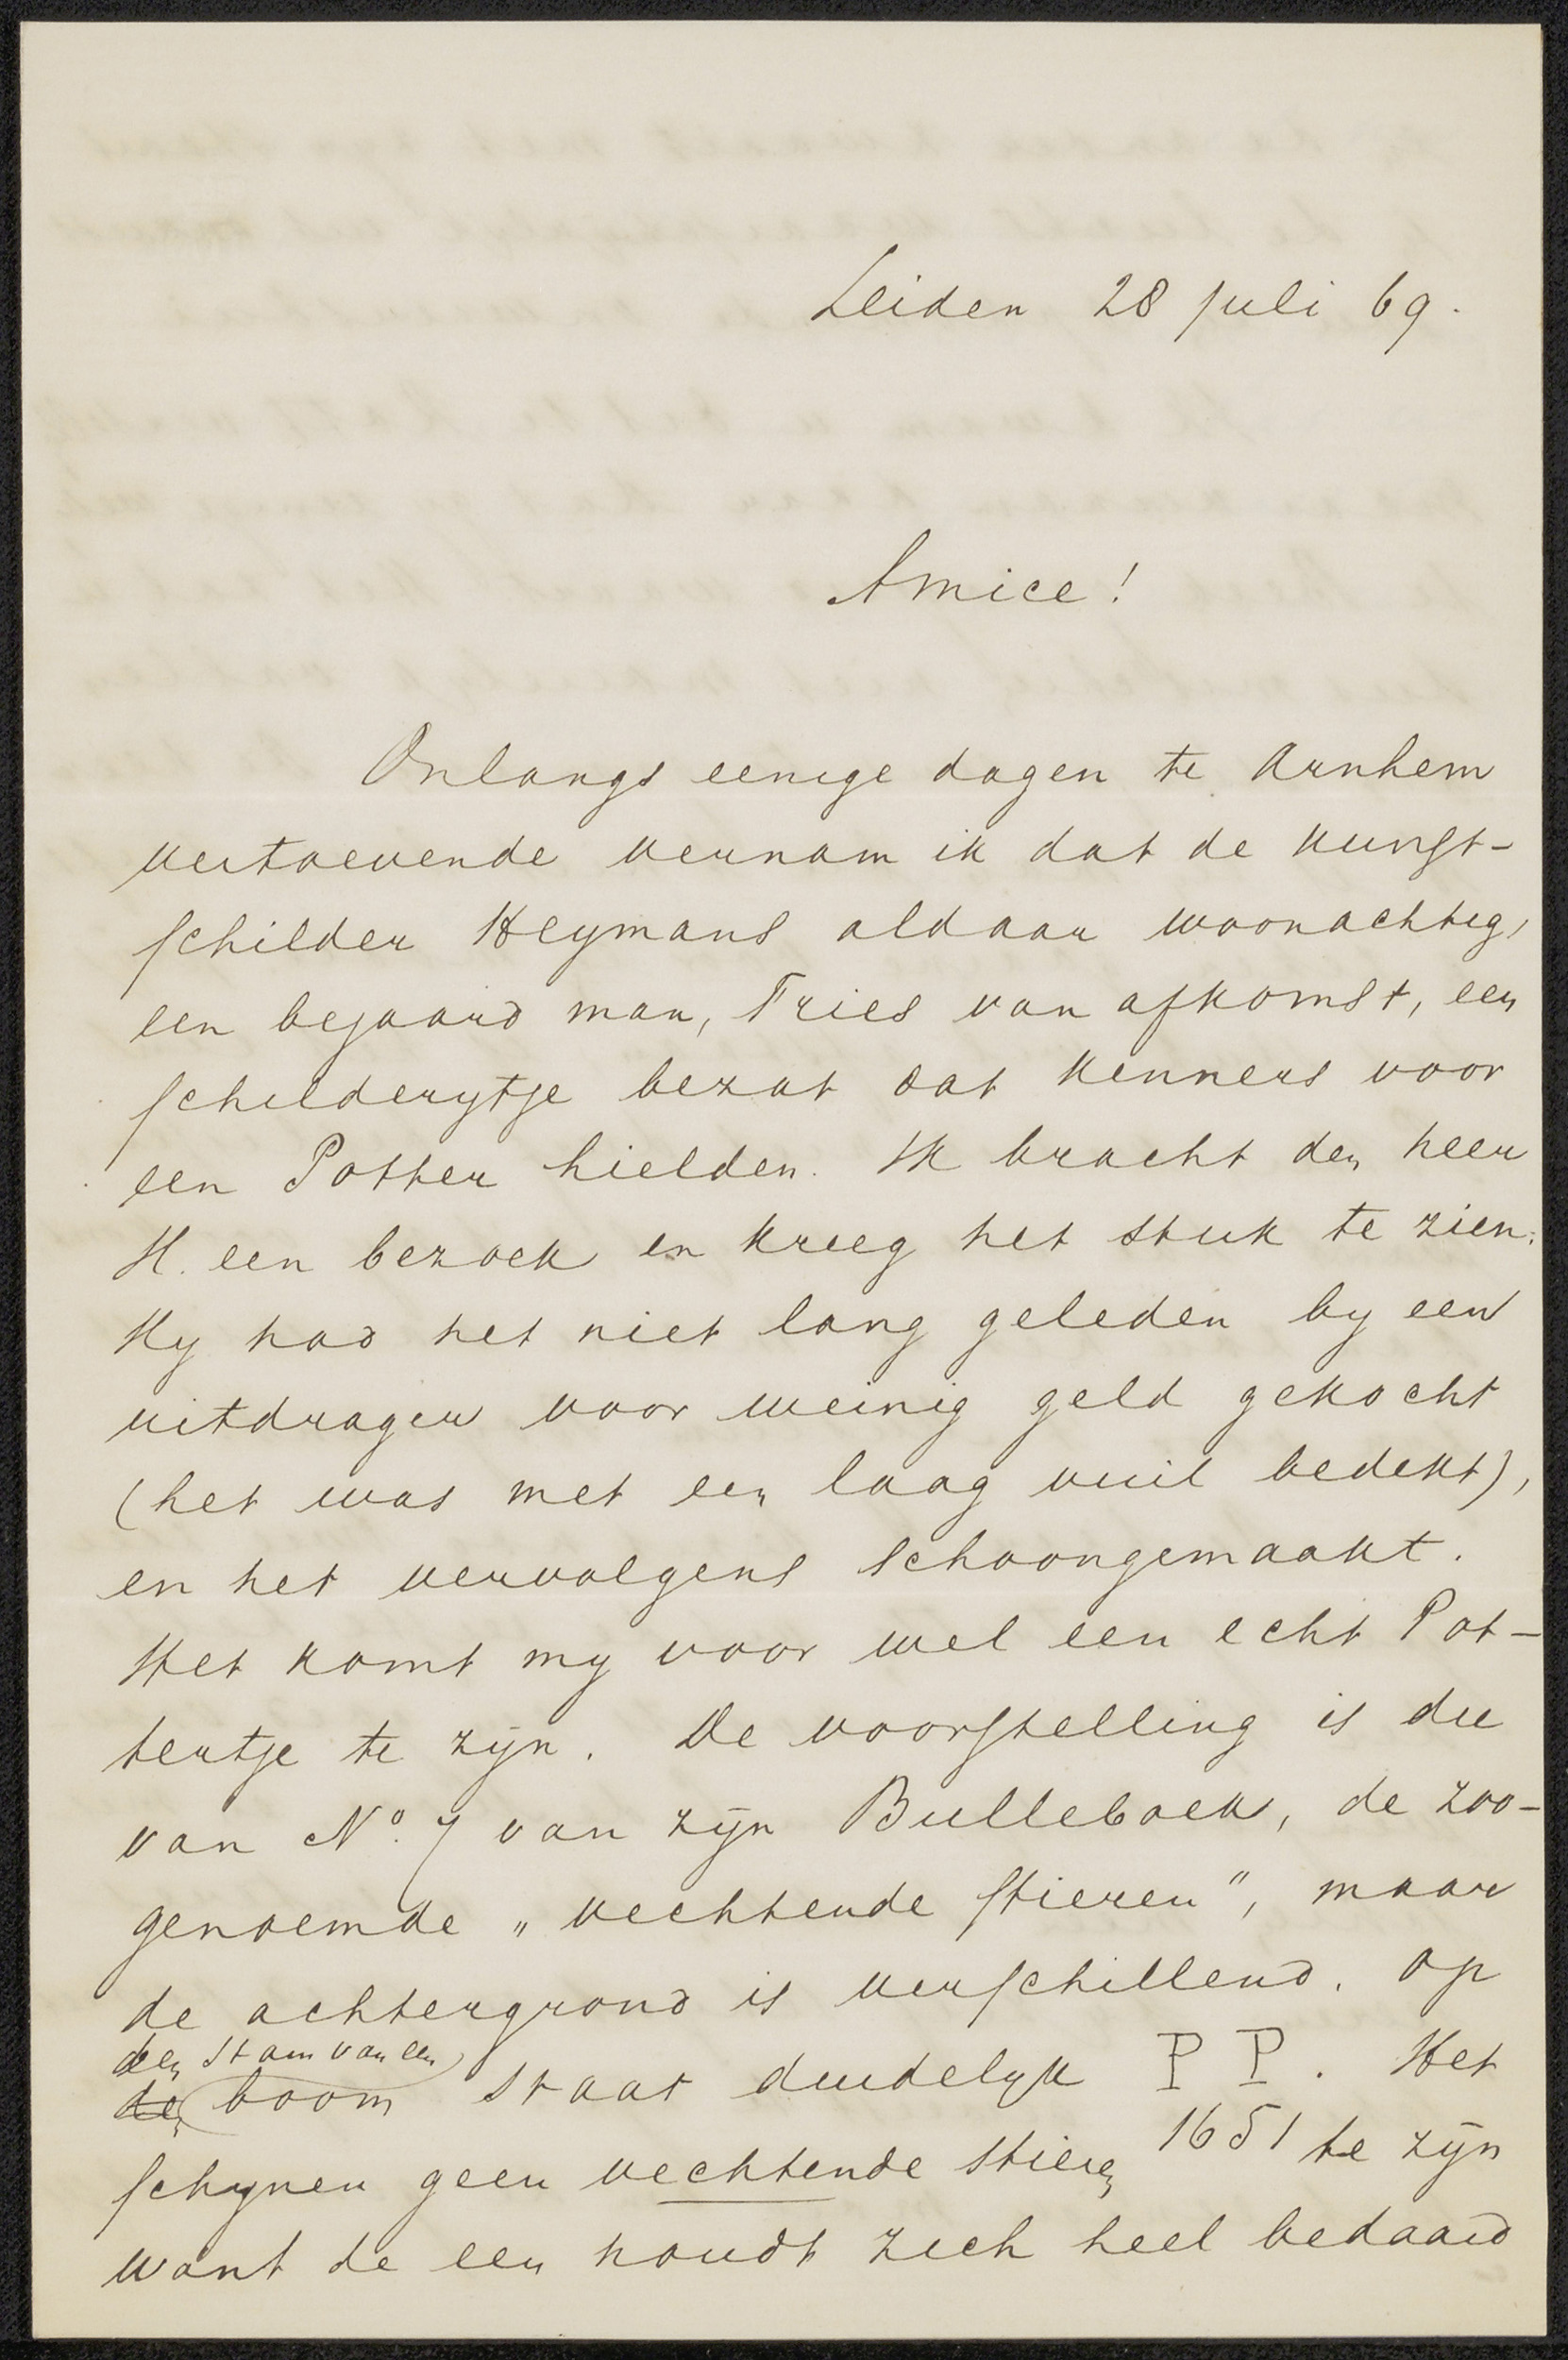 Leiden 28 Juli 69.
Amice!
Onlangs eenige dagen te Arnhem
vertoevende vernam ik dat de kunst-
schilder Heymans aldaar woonachtig,
een bejaard man, Fries van afkomst, een
schilderytje bezat dat kenners voor
een Potter hielden. Ik bracht den heer
H. een bezoek en kreeg het stuk te zien.
Hy had het niet lang geleden by een
uitdrager voor weinig geld gekocht
(het was met een laag vuil bedekt),
en het vervolgens schoongemaakt.
Het komt my voor wel een echt Pot-
tertje te zijn. De voorstelling is die
van No. 7 van zijn Bulleboek, de zoo-
genoemde „vechtende stieren", maar
de achtergrond is verschillend. Op
den stam van een
den boom staat duidelyk P P. Het
1651
schynen geen vechtende stieren te zijn
want de een houdt zich heel bedaard